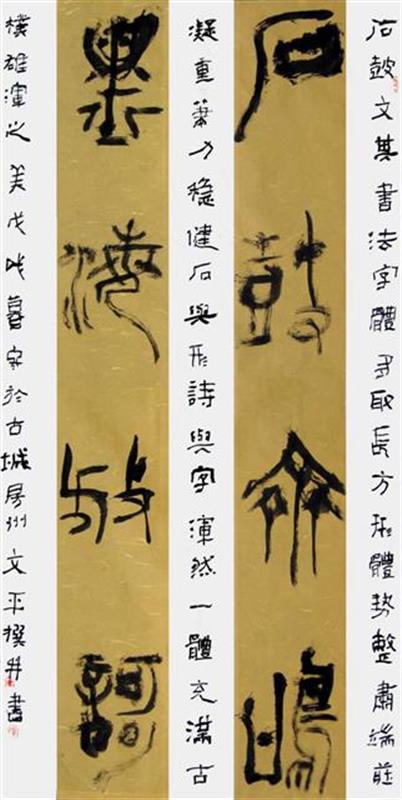 石鼓文其書法字體多取長方形體勢整肅端莊
石鼓齊鳴
凝重筆力穩健石與形詩與字渾然一體充滿古
墨海放訶
樸雄渾之美戊戌春於古城房州文平撰并書